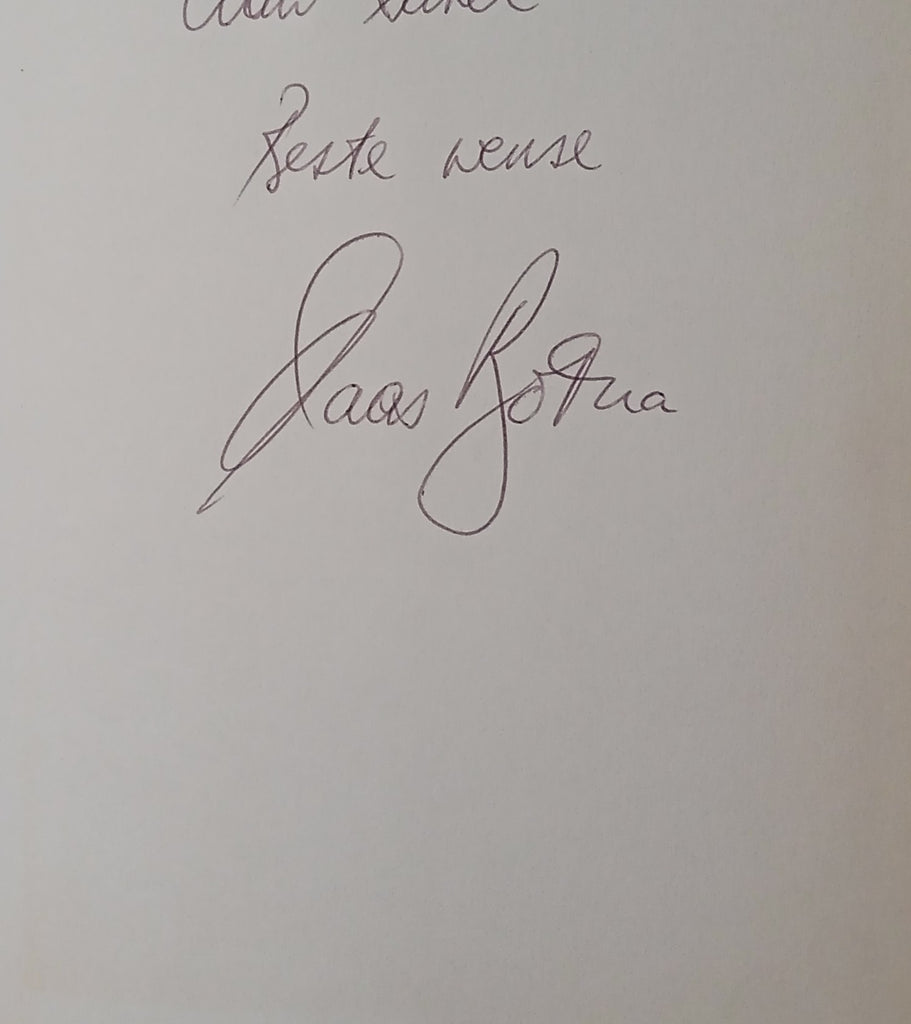 Beste wense
Naas Botha